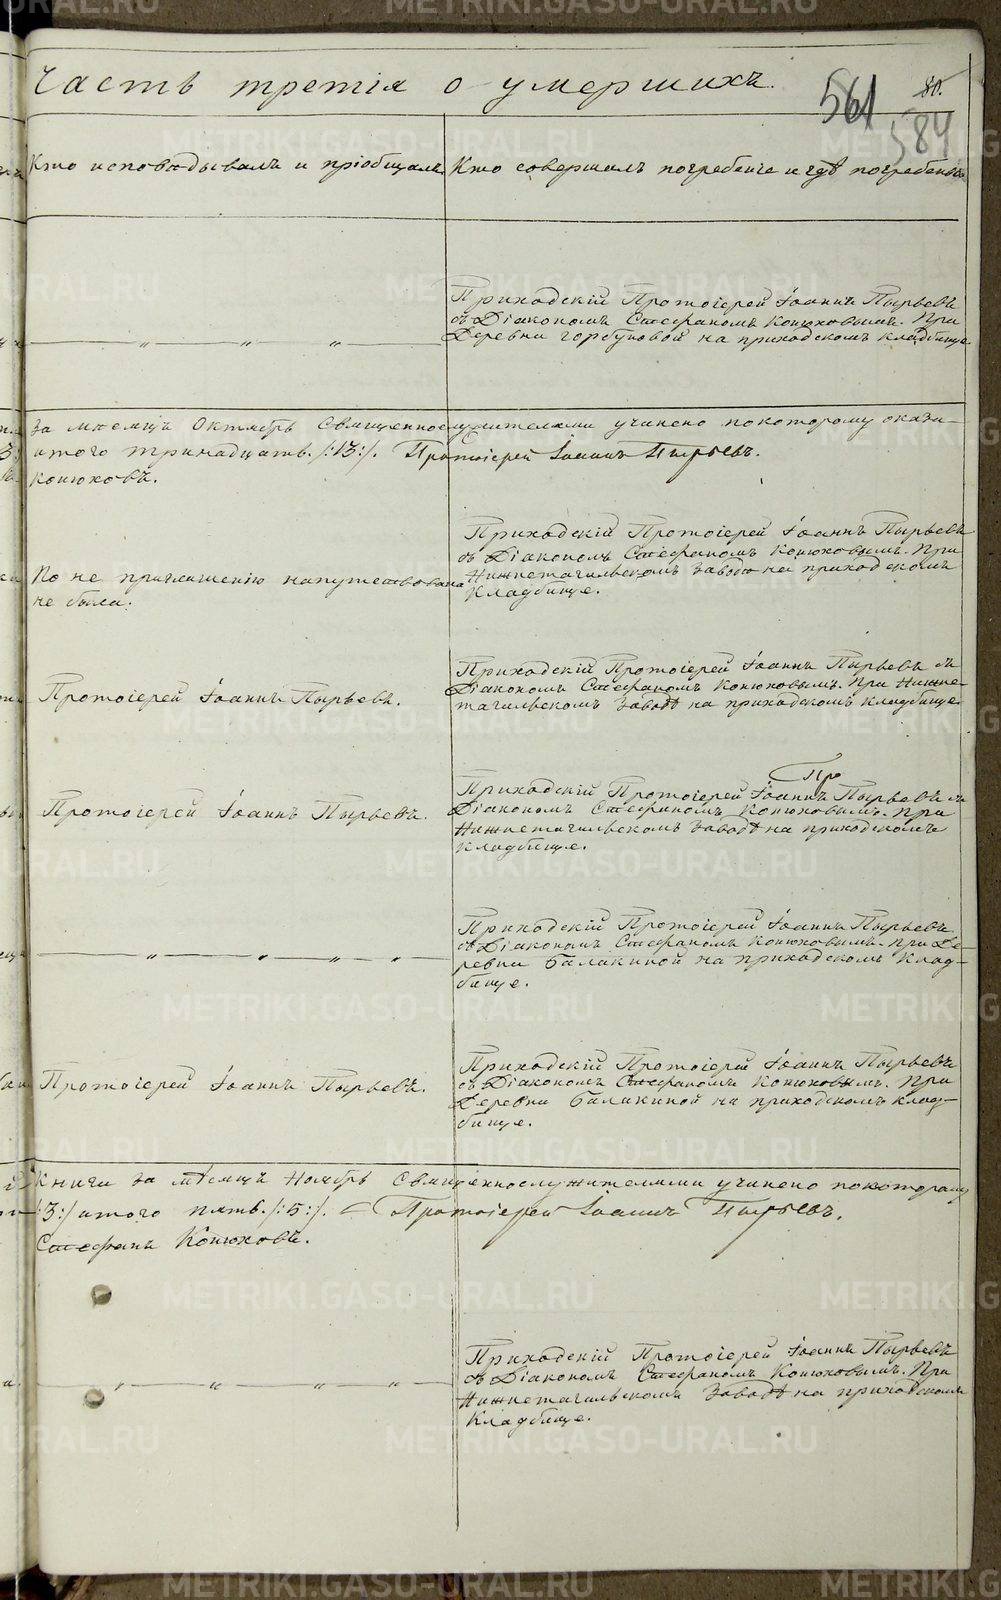 Часть третія о умершихъ.
561
80.
584
Кто исповѣдывалъ и пріобщалъ
Кто совершалъ погребеніе и гдѣ погребены
Приходскій Протоіерей Іоаннъ Пырьевъ
съ Діакономъ Стефаномъ Конюховымъ. При
Деревни Горбуновой на приходскомъ кладбище
За мѣсяцъ Октябрь Священнослужителями учинено по которому оказа-
итого тринадцать /:13:/. Протоіерей Іоаннъ Пырьевъ.
Конюховъ.
Приходскій Протоіерей Іоаннъ Пырьевъ
съ Діакономъ Стефаномъ Конюховымъ. При
Нижнетагильскомъ Заводѣ на приходскомъ
Кладбище.
По не приглашенію напутствована
не была.
Приходскій Протоіерей Іоаннъ Пырьевъ съ
Діакономъ Стефаномъ Конюховымъ. При Нижне-
тагильскомъ Заводѣ на приходскомъ кладбище
Протоіерей Іоаннъ Пырьевъ.
Про
Приходскій Протоіерей Іоаннъ Пырьевъ съ
Діакономъ Стефаномъ Конюховымъ. При
Нижнетагильскомъ Заводѣ на приходскомъ
Кладбище.
Протоіерей Іоаннъ Пырьевъ.
Приходскій Протоіерей Іоаннъ Пырьевъ
съ Діакономъ Стефаномъ Конюховымъ. при Де-
ревни Балакиной на приходскомъ Клад-
бище.
Приходскій Протоіерей Іоаннъ Пырьевъ
съ Діакономъ Стефаномъ Конюховымъ. При
Деревни Балакиной на приходскомъ клад-
бище.
Протоіерей Іоаннъ Пырьевъ.
Книги за мѣсяцъ Ноябрь Священнослужителями учинено по которому
/:3:/ итого пять /:5:/. Протоіерей Іоаннъ Пырьевъ.
Стефанъ Конюховъ.
Приходскій Протоіерей Іоаннъ Пырьевъ
съ Діакономъ Стефаномъ Конюховымъ. При
Нижнетагильскомъ Заводѣ на приходскомъ
Кладбище.
METRIKI.GASO-URAL.RU